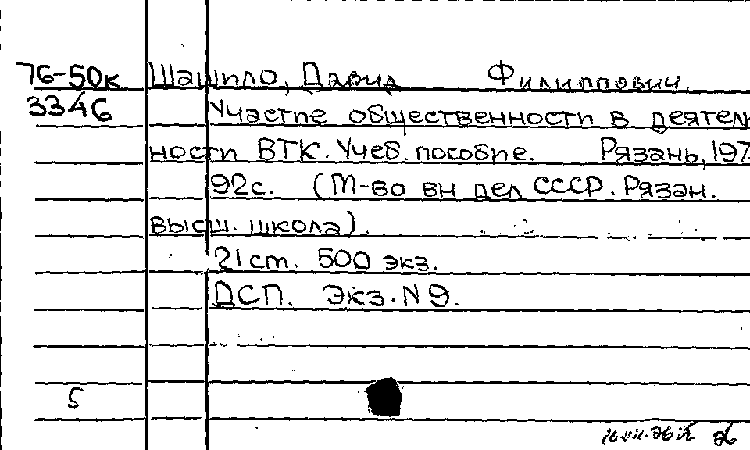 76-50к Шашило, Давид Филиппович.
3346 Участие общественности в деятель
ности ВТК. Учеб. пособие. Рязань, 197
92с. (М-во вн дел СССР. Рязан.
высш. школа).
21 см. 500 экз.
ДСП. Экз. N 9.
5